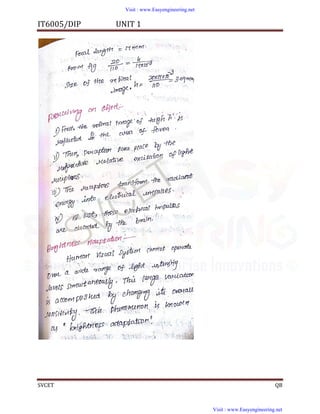 Visit : www.Easyengineering.net
IT6005/DIP UNIT 1
Focal length = 17mm.
From fig
Size of the retinal
image, h =
Perceiving an object:-
i) First, the retinal image of height 'h' is
reflected in the area of fovea
ii) Then, perception takes place by the
relative excitation of light
receptors.
iii) The receptors transform the radiant
energy into electrical impulses.
iv) At last, these electrical impulses
are decoded by the brain.
Brightness Adaptation:-
Human visual system cannot operate
over a wide range of light intensity
levels simultaneously. This large variation
is accomplished by changing its overall
sensitivity. This phenomenon is known
as "brightness adaptation".
SVCET
SVCET QB
Visit : www.Easyengineering.net